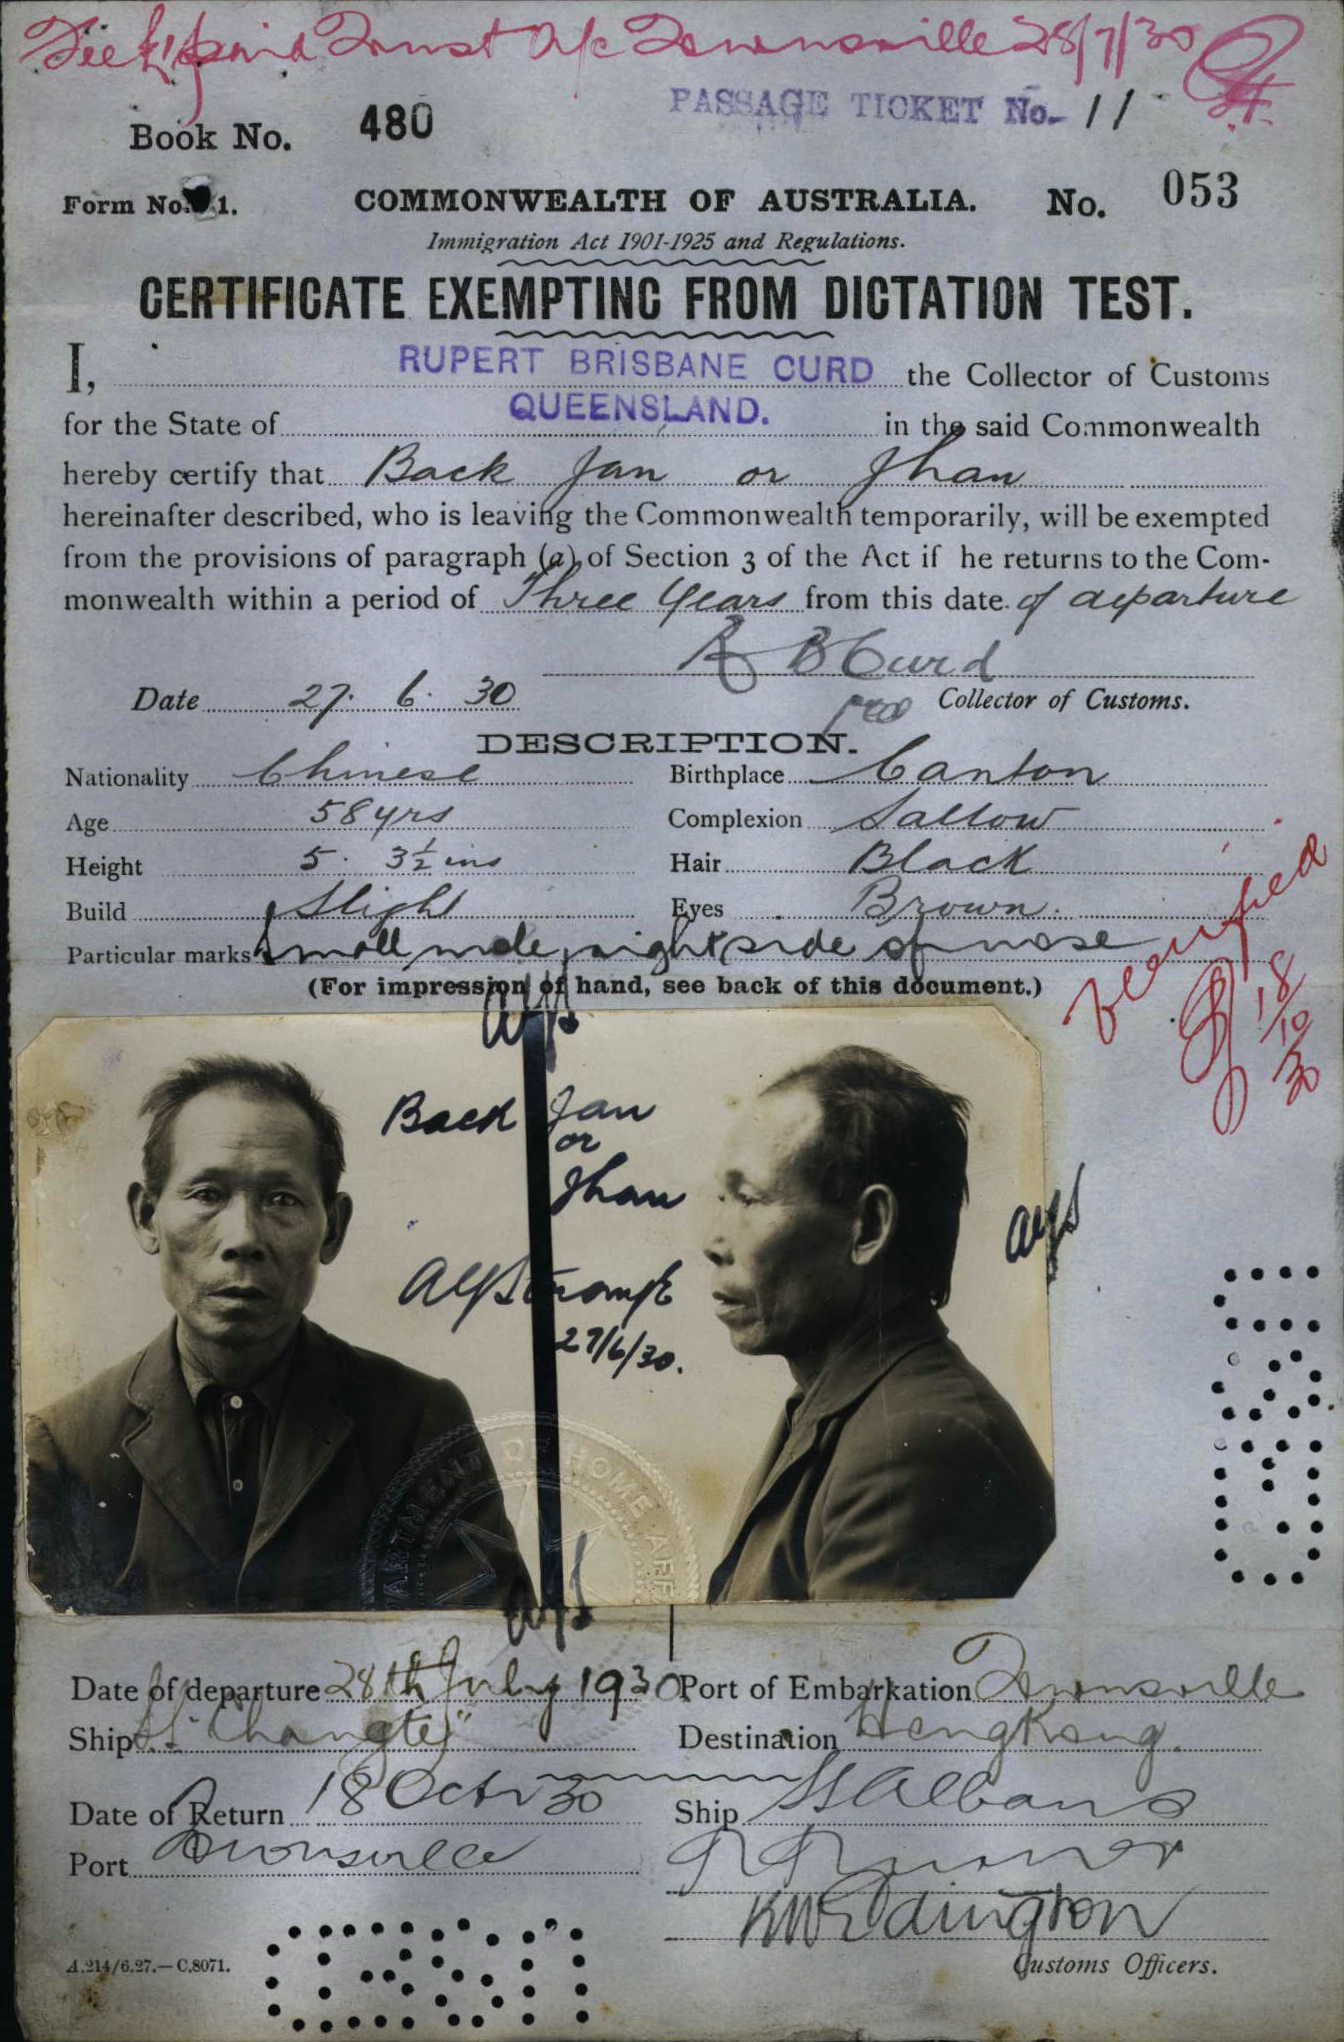 Fee £1 paid Trust A/c Townsville 28/7/30
PASSAGE TICKET No. 11
Book No. 480
Form No. 21. COMMONWEALTH OF AUSTRALIA. No. 053
Immigration Act 1901-1925 and Regulations.
CERTIFICATE EXEMPTING FROM DICTATION TEST.
I, RUPERT BRISBANE CURD the Collector of Customs
for the State of QUEENSLAND. in the said Commonwealth
hereby certify that Back Jan or Jhan
hereinafter described, who is leaving the Commonwealth temporarily, will be exempted
from the provisions of paragraph (a) of Section 3 of the Act if he returns to the Com-
monwealth within a period of Three Years from this date of departure
R B Curd
Date 27. 6. 30 Collector of Customs.
DESCRIPTION.
Nationality Chinese Birthplace Canton
Age 58 yrs Complexion Sallow
Height 5. 3½ ins Hair Black
Build Slight Eyes Brown.
Particular marks Small mole right side of nose
(For impression of hand, see back of this document.)
18/10/30
Back Jan
or
Jhan
27/6/30.
DEPARTMENT OF HOME AFF
Date of departure 28th July 1930 Port of Embarkation Townsville
Ship S.S. "Changte" Destination HongKong.
Date of Return 18 Octr 30 Ship St Albans
Port Townsville
KW Edington
A.214/6.27.—C.8071. Customs Officers.